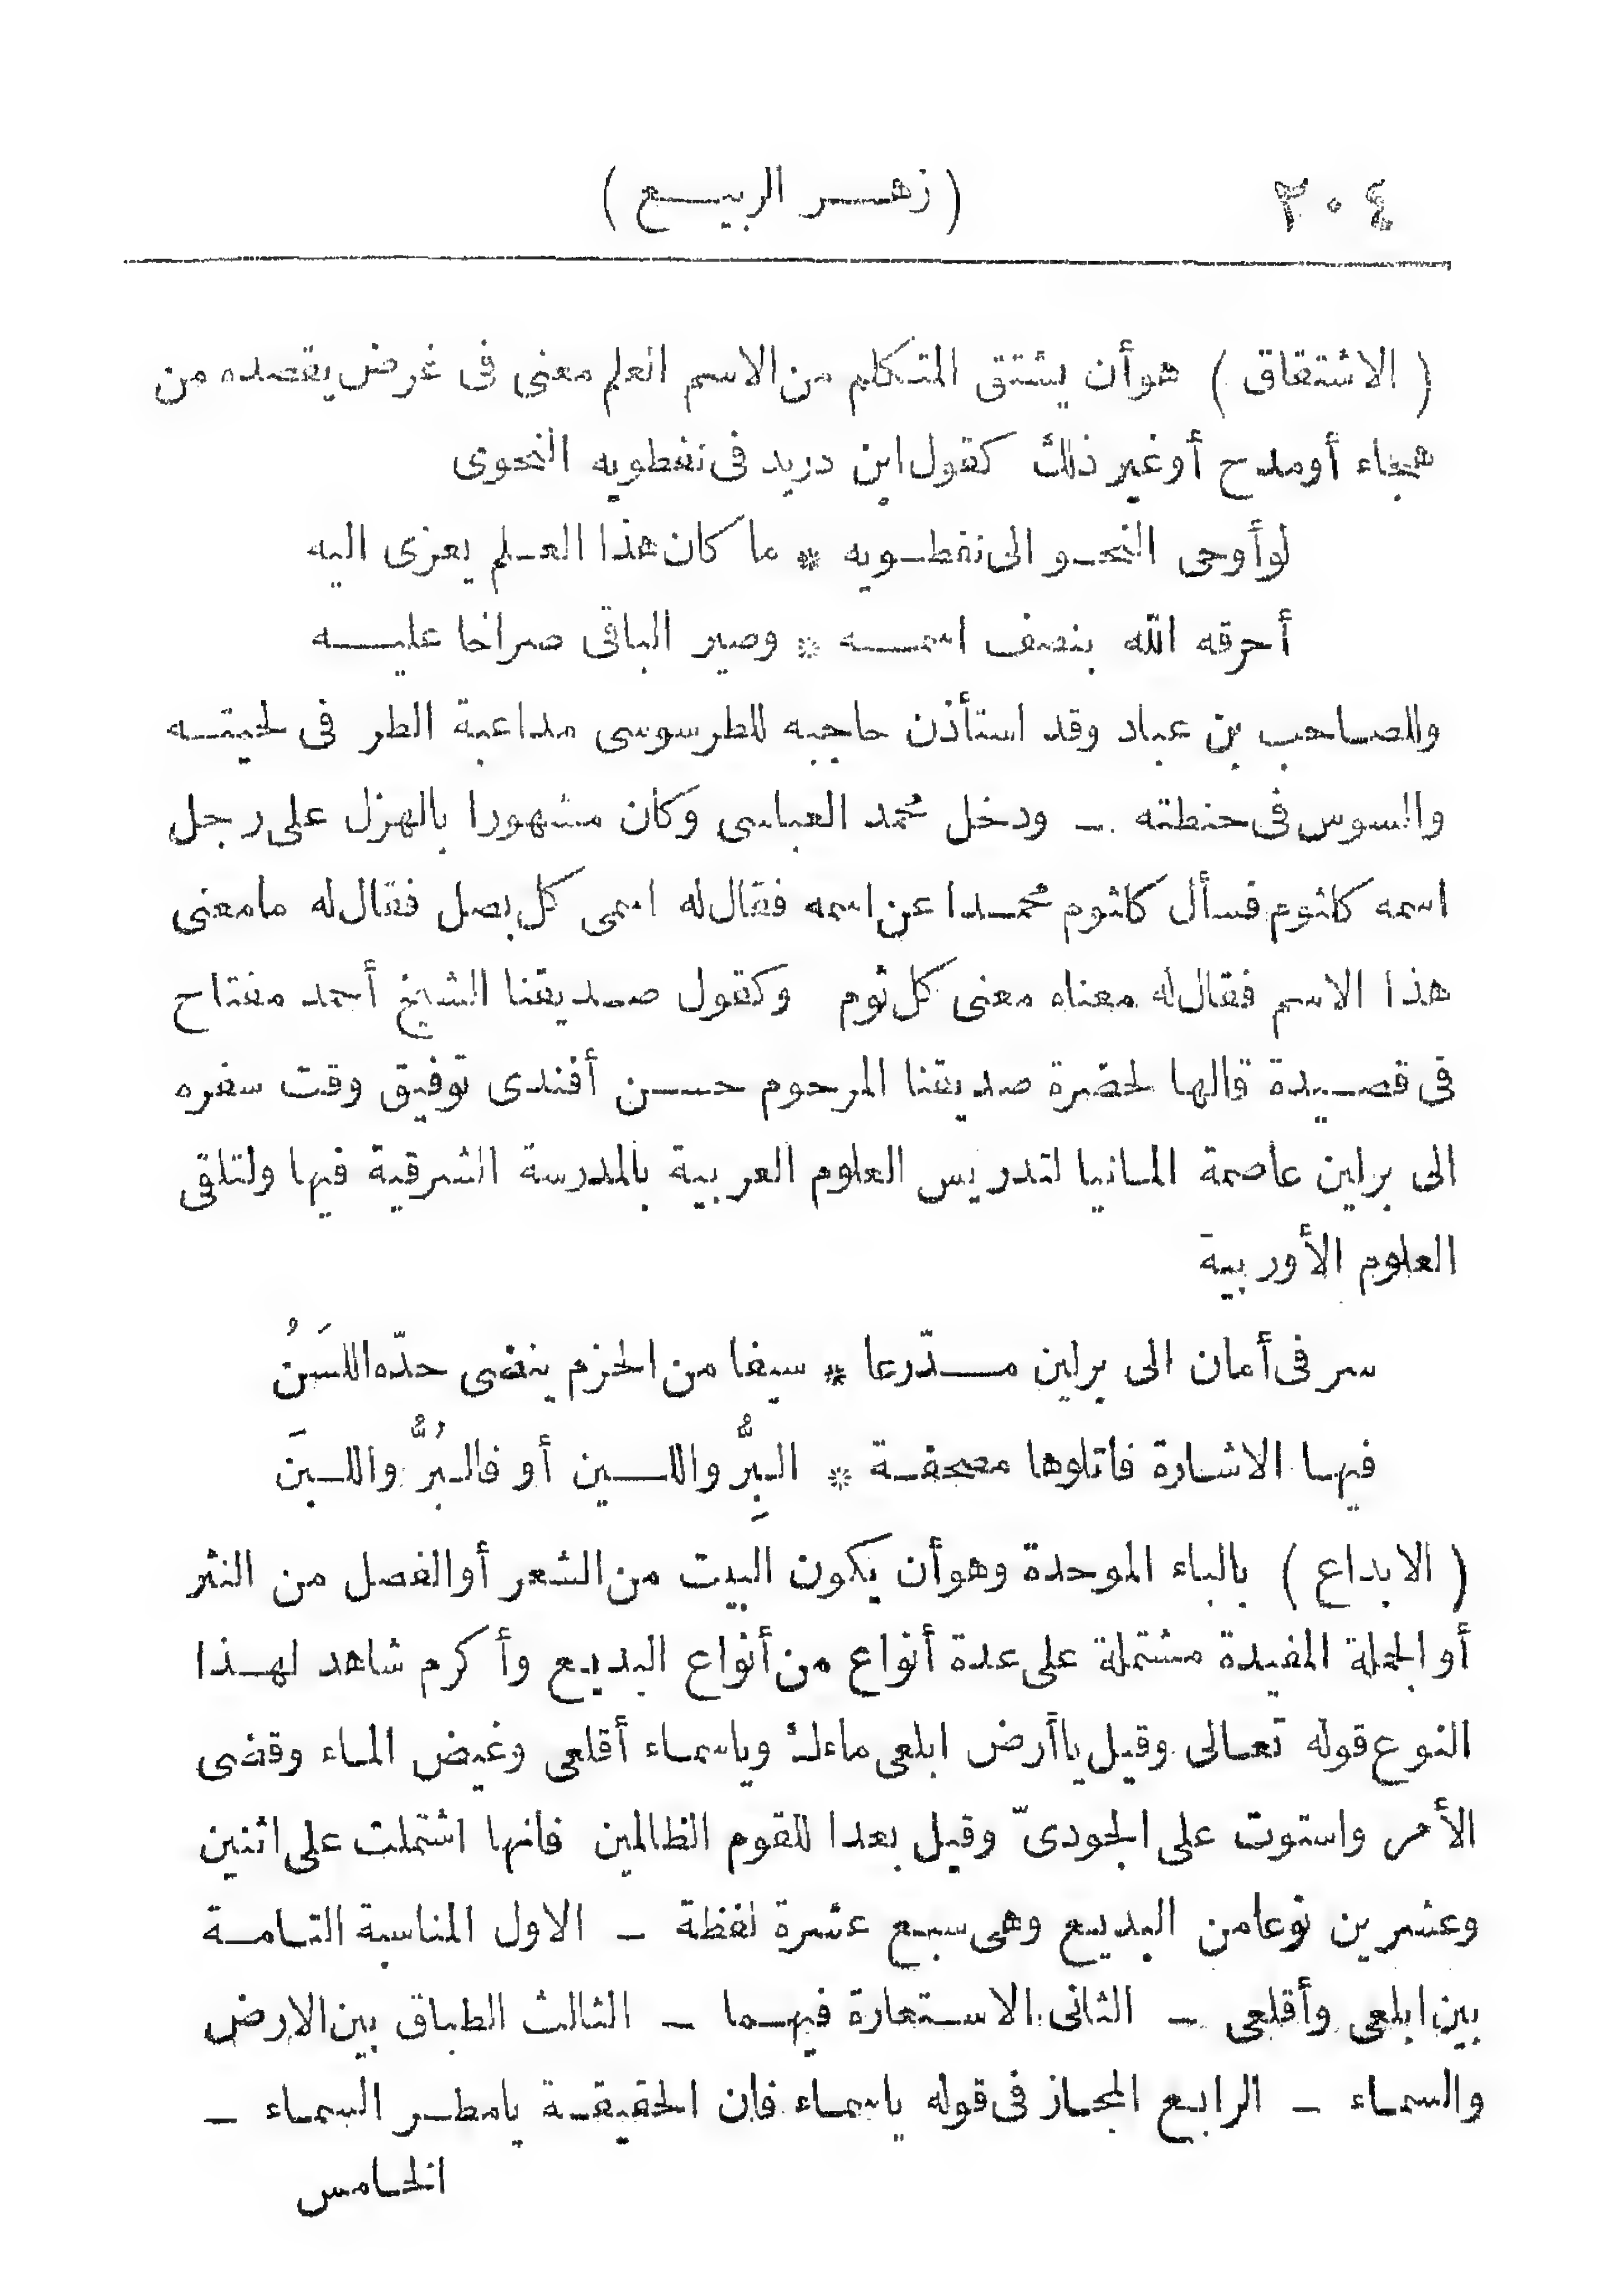 ٢٠٤ ( زهر الربيع )
( الاشتقاق ) هو أن يشتق المتكلم من الاسم العلم معنى فى غرض يقصده من
هجاء أو مدح أو غير ذلك كقول ابن دريد فى نفطويه النحوى
لو أوحى النحو الى نفطويه * ما كان هذا العلم يعزى اليه
أحرقه الله بنصف اسمه * وصير الباقى صراخا عليه
وللصاحب بن عباد وقد استأذن حاجبه للطرسوسى مداعبة الطر فى لحيته
والسوس فى حنطته ــ ودخل محمد العباسى وكان مشهورا بالهزل على رجل
اسمه كلثوم فسأل كلثوم محمدا عن اسمه فقال له اسمى كل بصل فقال له ما معنى
هذا الاسم فقال له معناه معنى كل ثوم وكقول صديقنا الشيخ أحمد مفتاح
فى قصيدة قالها لحضرة صديقنا المرحوم حسن أفندى توفيق وقت سفره
الى برلين عاصمة المانيا لتدريس العلوم العربية بالمدرسة الشرقية فيها ولتلقى
العلوم الأوربية
سر فى أمان الى برلين مدّرعا * سيفا من الحزم ينضى حدّه اللسَنُ
فيها الاشارة فاتلوها مصحفة * البِرُّ واللين أو فالبُرُّ واللبنَ
( الابداع ) بالباء الموحدة وهو أن يكون البيت من الشعر أو الفصل من النثر
أو الجملة المفيدة مشتملة على عدة أنواع من أنواع البديع وأكرم شاهد لهذا
النوع قوله تعالى وقيل ياأرض ابلعى ماءك وياسماء أقلعى وغيض الماء وقضى
الأمر واستوت على الجودىّ وقيل بعدا للقوم الظالمين فانها اشتملت على اثنين
وعشرين نوعا من البديع وهى سبع عشرة لفظة ــ الاول المناسبة التامة
بين ابلعى وأقلعى ــ الثانى الاستعارة فيهما ــ الثالث الطباق بين الارض
والسماء ــ الرابع المجاز فى قوله ياسماء فان الحقيقة يامطر السماء ــ
الخامس